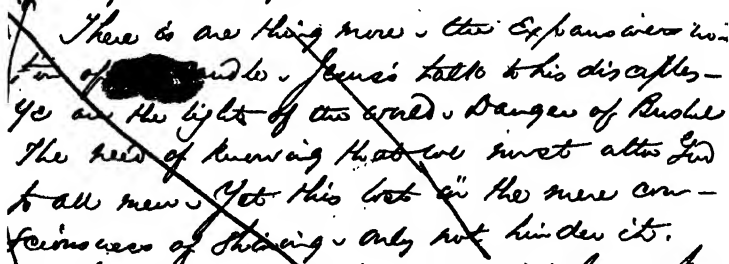 There is one thing more. The Expansiveness
of andle. Jesus's talk to his disciples—
Ye are the light of the world. Danger of Bushel
The need of knowing that we must utter God
to all men. Yet this lost in the mere con-
sciousness of Shining. Only not hinder it.